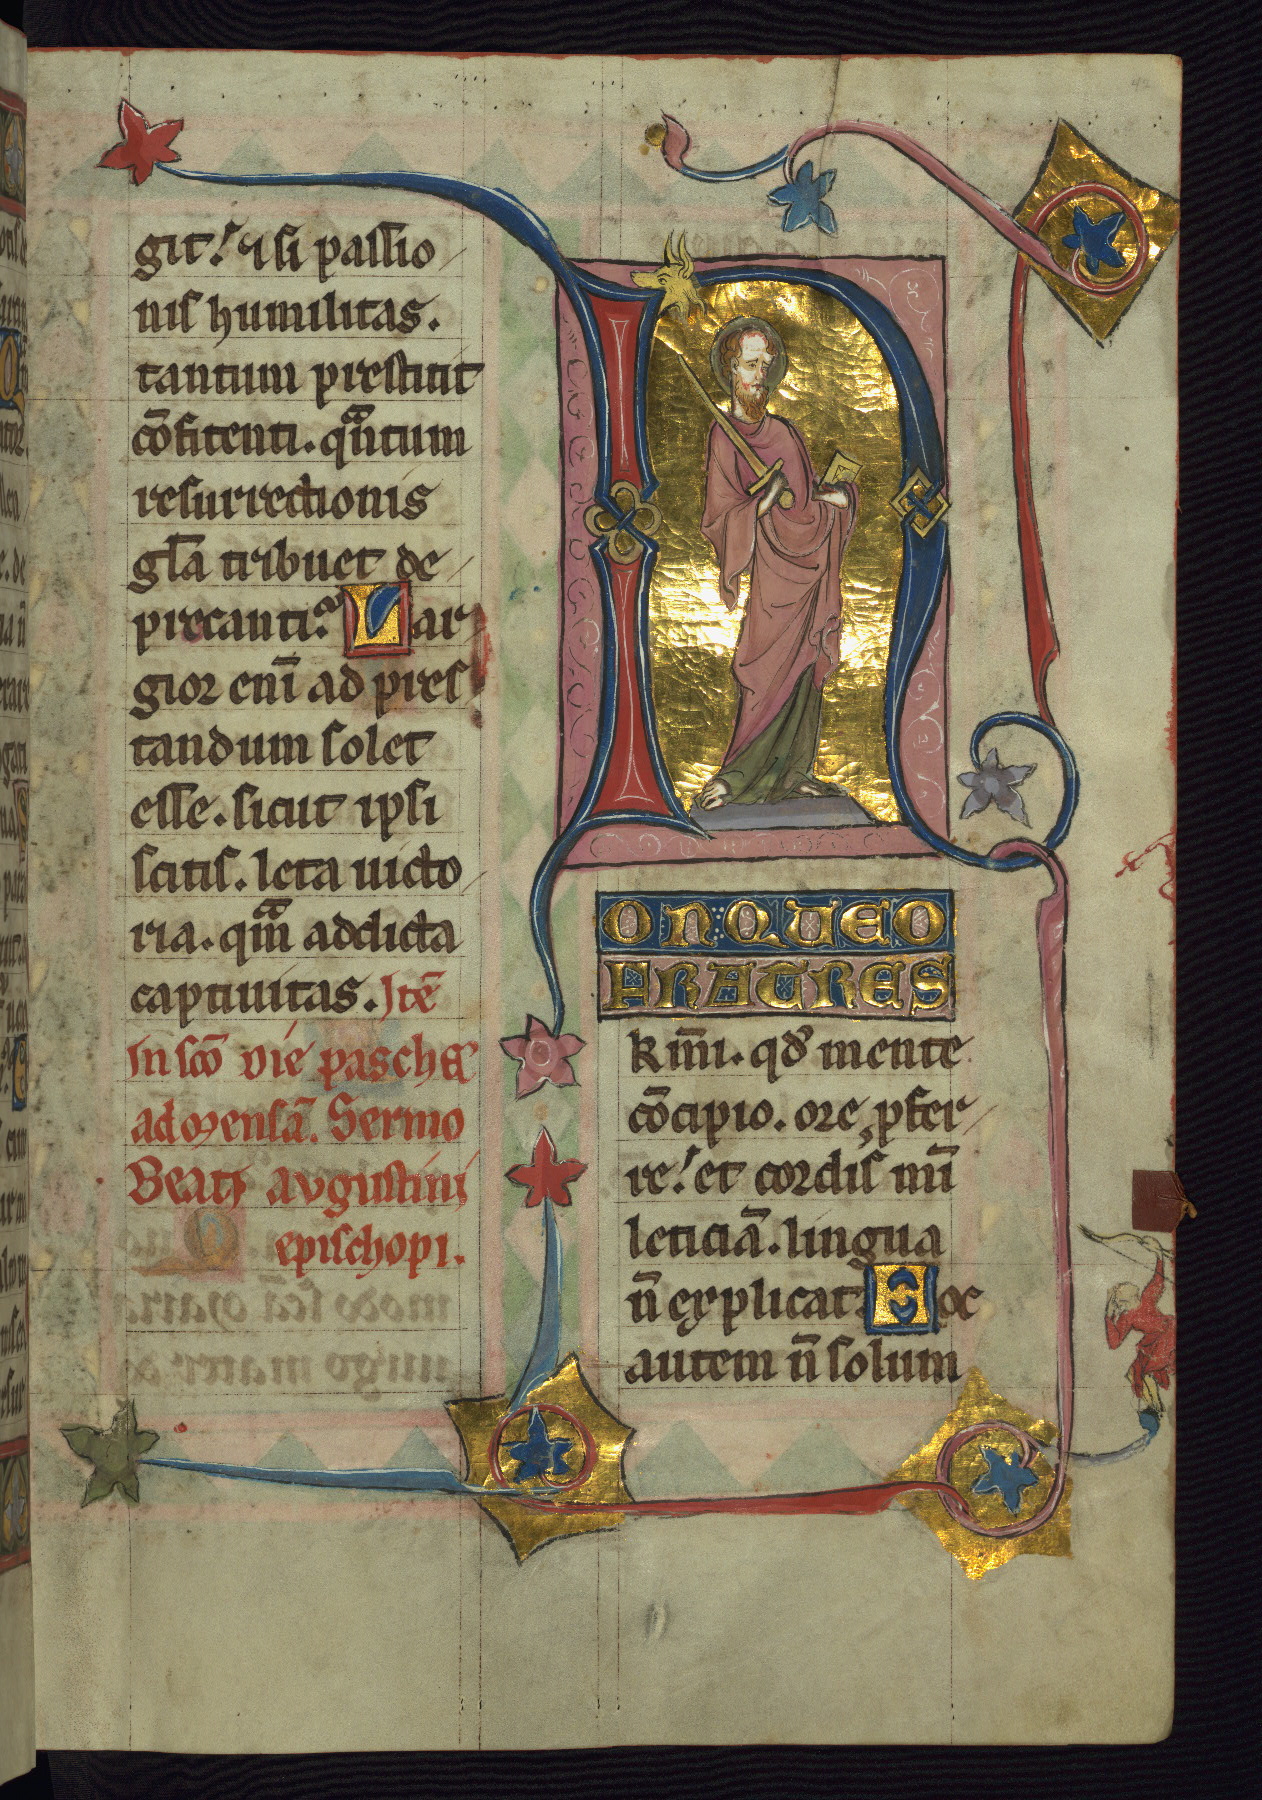 git. et si passio
nis humilitas.
tantum prestitit
cōfitenti. qāntum
resurrectionis
glā tribuet de
precanti. Lar
gior enī ad pres
tandum solet
esse. sicut ipsi
scitis. leta uicto
ria. qām addicta
captiuitas. Itē
In scō die pasche
ad mensā. Sermo
Beati augustini
epischopi.
NON QUEO
FRATRES
Kīmi. qd̄ mente
cōcipio. ore pfer
re. et cordis mī
leticiā. lingua
n̄ explicat. Hoc
autem n̄ solum